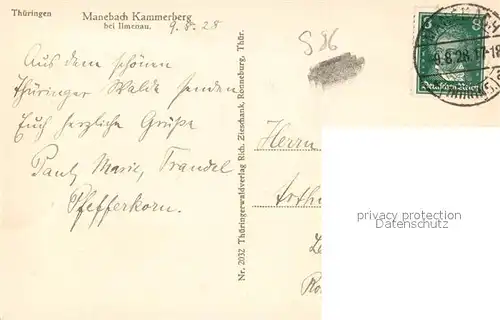 Thüringen
Manebach Kammerberg
bei Ilmenau.
9.8.28
Aus dem schönen
Thüringer Walde senden
Euch herzliche Grüße
Marie,
Pfefferkorn.
Nr. 2032 Thüringerwaldverlag Rich. Zieschank, Ronneburg, Thür.
S 86
Herrn
privacy protection
Datenschutz
Deutsches Reich
9.8.28.17-18